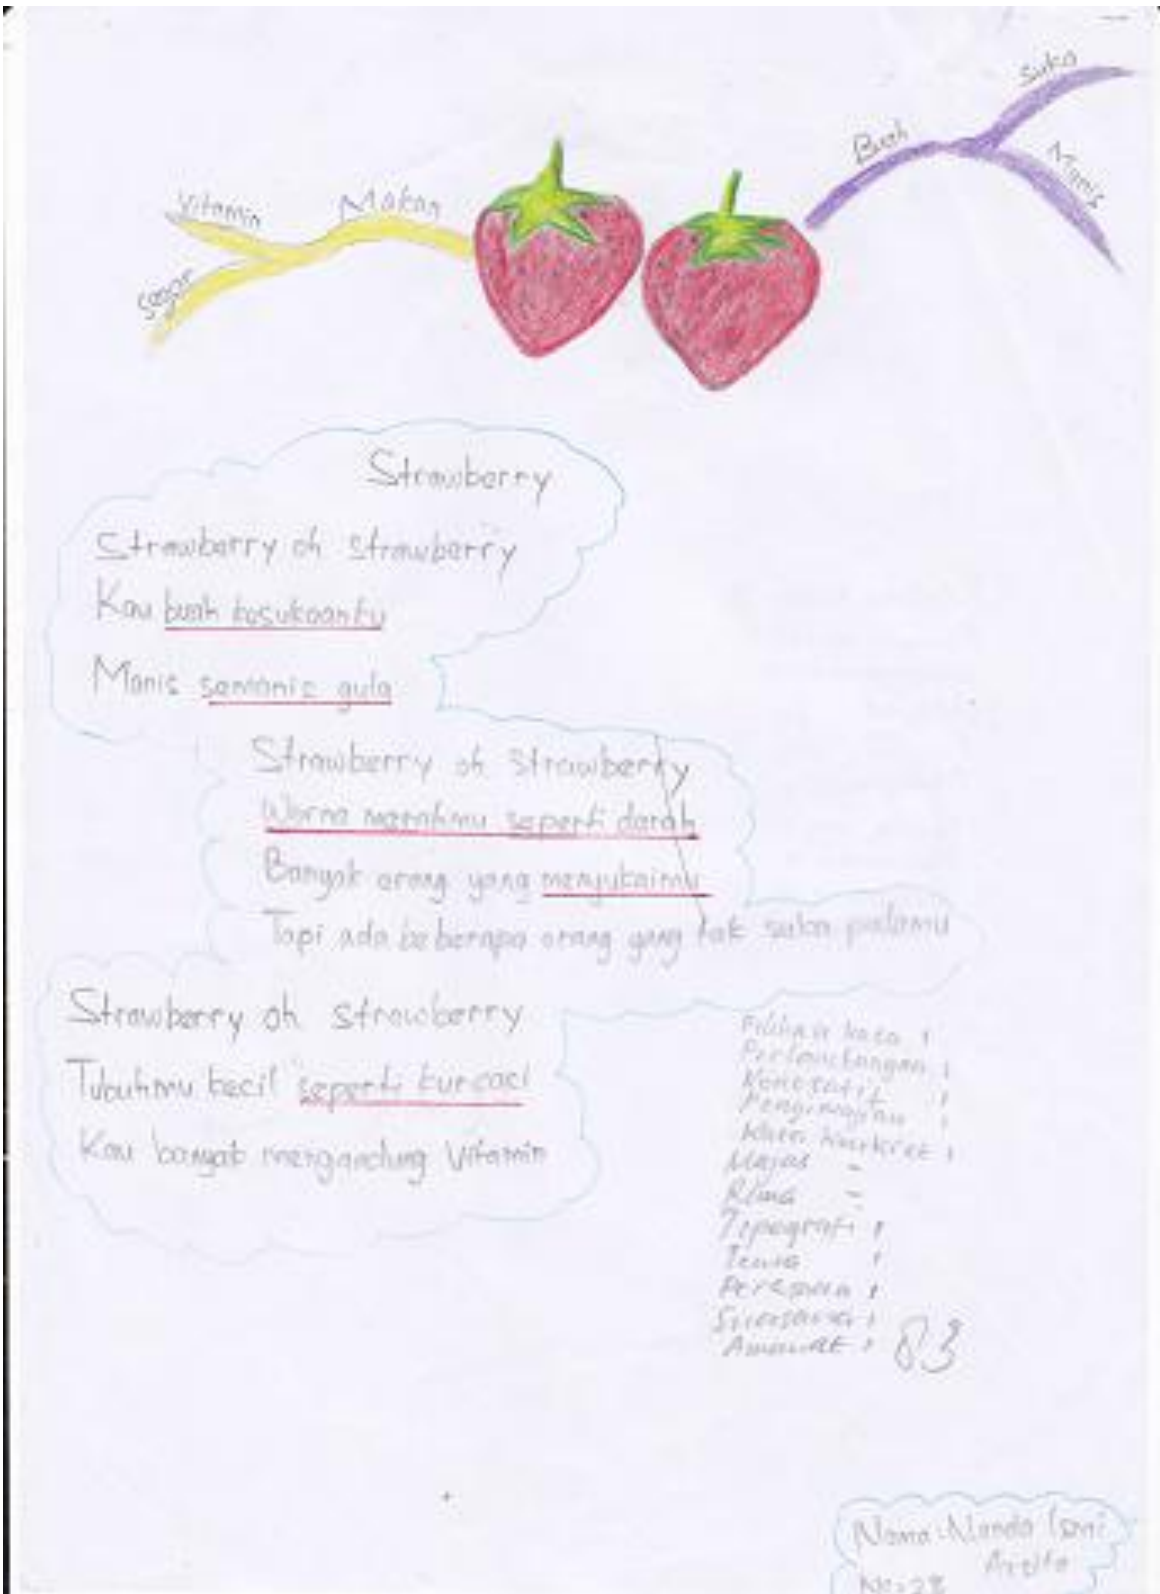 Suka
Buah
Manis
Makan
Vitamin
Segar
Strawberry
Strawberry oh strawberry
Kau buah kesukaanku
Manis semanis gula
Strawberry oh strawberry
Warna merahmu seperti darah
Banyak orang yang menyukaimu
Tapi ada beberapa orang yang tak suka padamu
Strawberry oh strawberry
Tubuhmu kecil seperti kurcaci
Kau banyak mengandung vitamin
Pilihan kata 1
Perlambangan 1
Konotatif 1
Pengimajian 1
Kata konkret 1
Majas -
Rima -
Tipografi 1
Tema 1
Perasaan 1
Suasana 1
Amanat 1
83
Nama: Nanda
No: 28